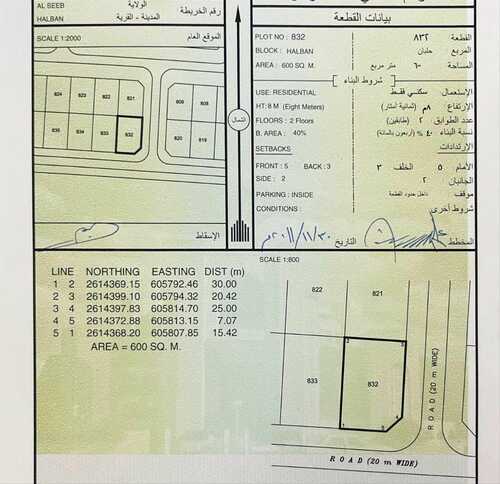 AL SEEB
HALBAN
الولاية
المدينة - القرية
رقم الخريطة
SCALE 1:2000
الموقع العام
824
823
822
821
835
834
833
832
808
809
820
819
شمال
الإسقاط
بيانات القطعة
PLOT NO : 832
القطعة ٨٣٢
BLOCK : HALBAN
المربع حلبان
AREA : 600 SQ. M.
المساحة ٦٠٠ متر مربع
شروط البناء
USE: RESIDENTIAL
الاستعمال: سكني فقط
HT: 8 M (Eight Meters)
الإرتفاع ٨م (ثمانية أمتار)
FLOORS : 2 Floors
عدد الطوابق ٢ (طابقين)
B. AREA : 40%
نسبة البناء ٤٠٪ (أربعون بالمائة)
SETBACKS
الارتدادات
FRONT : 5 BACK : 3
الأمام ٥ الخلف ٣
SIDE : 2
الجانبان ٢
PARKING : INSIDE
موقف داخل حدود القطعة
CONDITIONS :
شروط أخرى
المخطط
التاريخ ٢٠١١/١١/٣٠م
SCALE 1:800
LINE NORTHING EASTING DIST (m)
1 2 2614369.15 605792.46 30.00
2 3 2614399.10 605794.32 20.42
3 4 2614397.83 605814.70 25.00
4 5 2614372.88 605813.15 7.07
5 1 2614368.20 605807.85 15.42
AREA = 600 SQ. M.
822
821
833
832
2
3
4
5
1
ROAD (20 m WIDE)
ROAD (20 m WIDE)